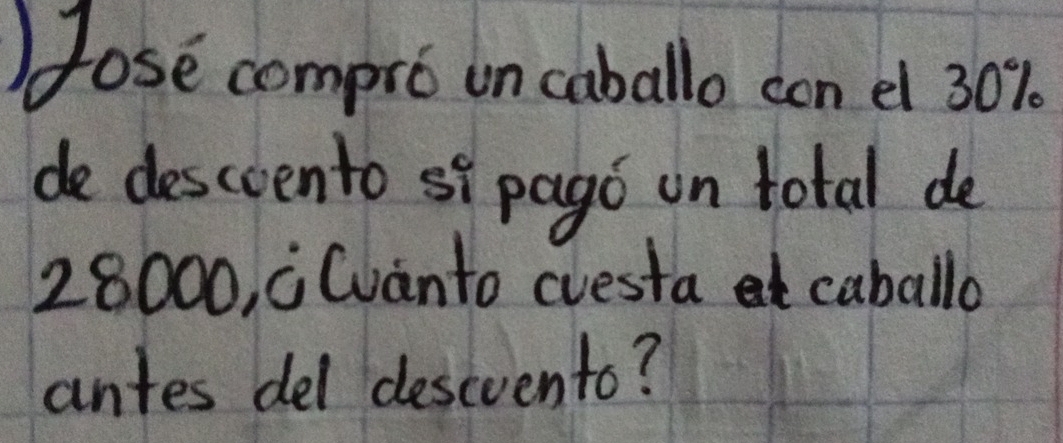 ) José compró un caballo con el 30%
de descuento si pagó un total de
28000, ¿Cuánto cuesta el caballo
antes del descuento?